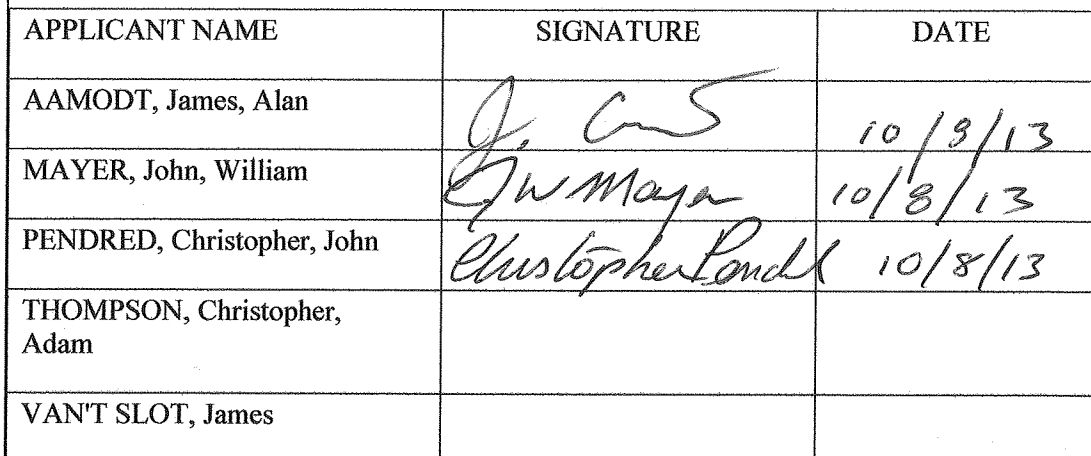 APPLICANT NAME SIGNATURE DATE
AAMODT, James, Alan J. 10/8/13
MAYER, John, William JW Mayer 10/8/13
PENDRED, Christopher, John Christopher Pendred 10/8/13
THOMPSON, Christopher,
Adam
VAN'T SLOT, James